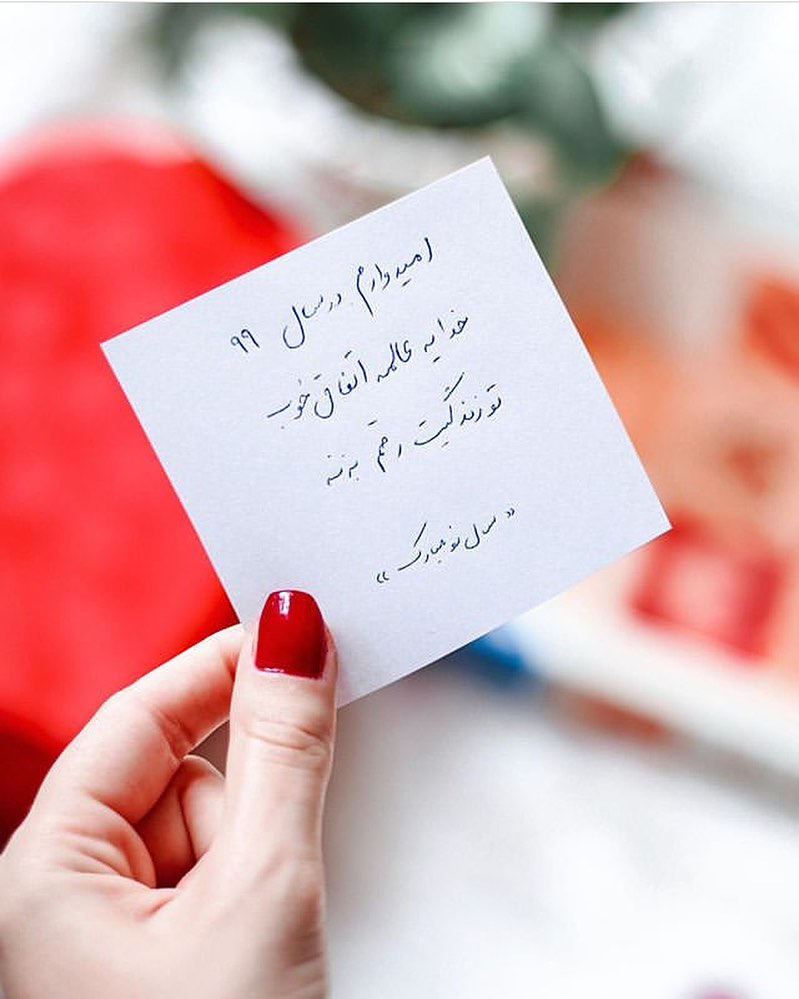 امیدوارم در سال ۹۹
خدا یه عالمه اتفاق خوب
تو زندگیت رقم بزنه
«سال نو مبارک»